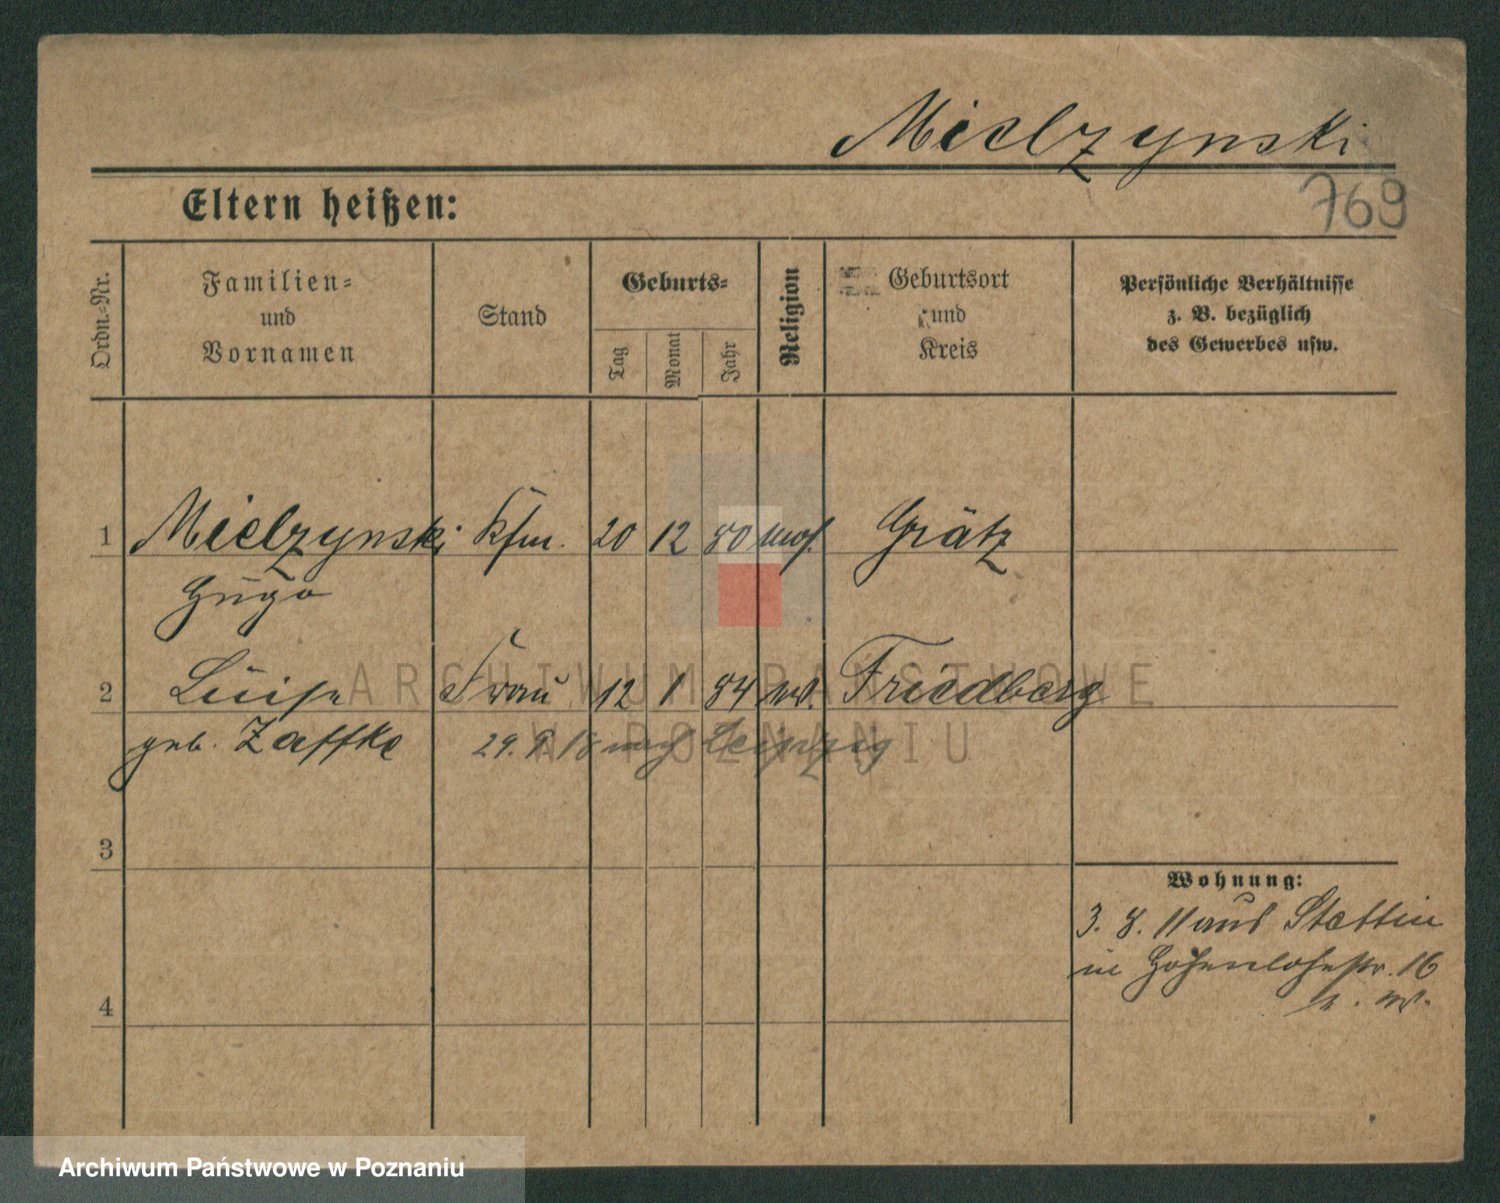 Mielzynski
769
Eltern heißen:
Ordn.-Nr.
Familien-
und
Vornamen
Stand
Geburts-
Tag
Monat
Jahr
Religion
Geburtsort
und
Kreis
Persönliche Verhältnisse
z. B. bezüglich
des Gewerbes usw.
1 Mielzynski Kfm. 20 12 80 mos. Grätz
Hugo
2 Luise Frau 12 1 84 Friedberg
geb. Zaffke 29. 18 nach Leipzig
3
Wohnung:
3. 8. 11 aus Stettin
in Hohenlohestr. 16
4
ARCHIWUM PAŃSTWOWE
W POZNANIU
Archiwum Państwowe w Poznaniu